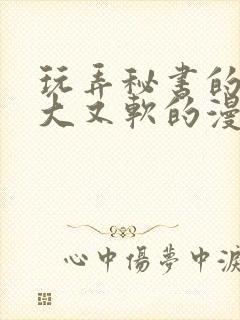 玩弄秘书的
大又軟的漫
心中傷夢中淚